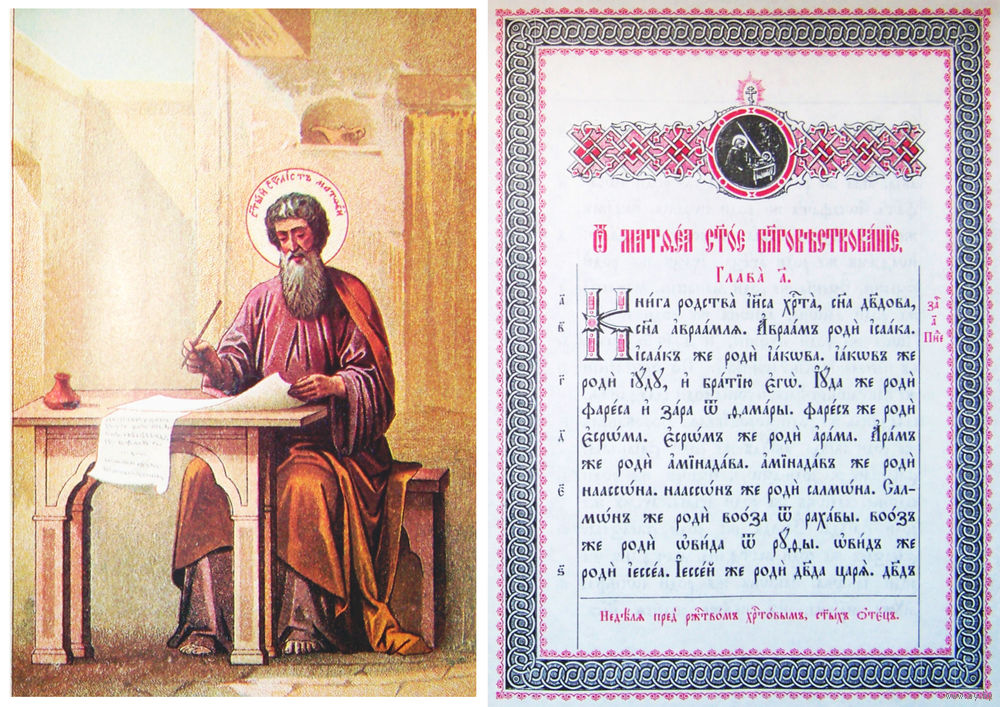 СТЫ́Й ЕѴ҃ЛІСТЪ МАТѲЕЙ
Ѿ МАТѲЕ́А СТ҃О́Е БЛ҃ГОВѢСТВОВА́НІЕ.
Глава̀ а҃.
а҃ Кни́га родства̀ і҆и҃са хрⷭ҇та̀, сн҃а дв҃дова,
в҃ сн҃а а҆враа́млѧ. А҆враа́мъ родѝ і҆саа́ка.
І҆саа́къ же родѝ і҆а́кѡва. і҆а́кѡвъ же
г҃ родѝ і҆ꙋ́дꙋ, и҆ бра́тїю є҆гѡ̀. І҆ꙋ́да же родѝ
фаре́са и҆ за́ра ѿ ѳама́ры. фаре́съ же родѝ
д҃ є҆срѡ́ма. є҆срѡ́мъ же родѝ а҆ра́ма. А҆ра́мъ
же родѝ а҆мїнада́ва. а҆мїнада́въ же родѝ
є҃ наассѡ́на. наассѡ́нъ же родѝ салмѡ́на. Сал-
мѡ́нъ же родѝ воо́за ѿ раха́вы. воо́зъ
же родѝ ѡ҆ви́да ѿ рꙋ́ѳы. ѡ҆ви́дъ же
ѕ҃ родѝ і҆ессе́а. І҆ессе́й же родѝ дв҃да царѧ̀. дв҃дъ
за҃ч
а҃
Пн҃е
Недѣ́лѧ пред̾ ржⷭ҇тво́мъ хрⷭ҇то́вымъ, ст҃ы́хъ ѻ҆те́цъ.